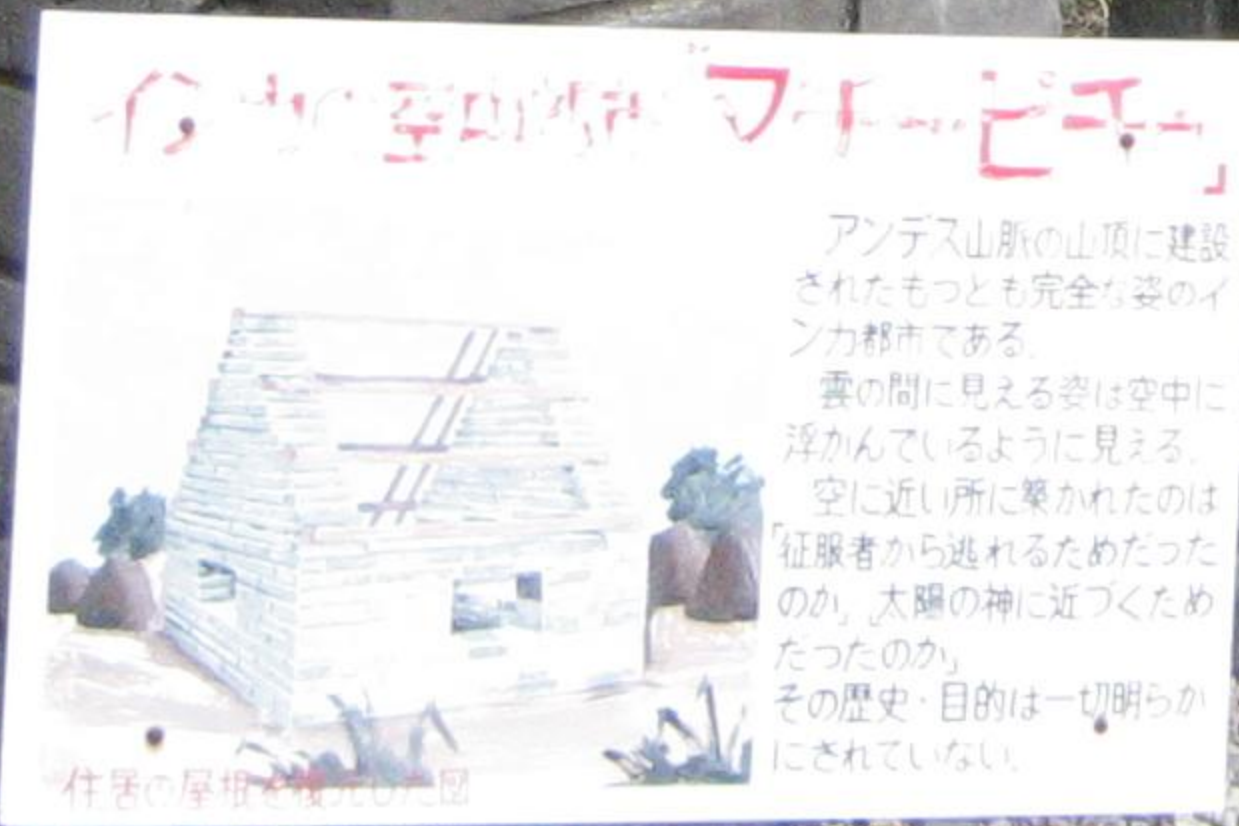 インカの空中都市「マチュピチュ」
アンデス山脈の山頂に建設
されたもっとも完全な姿のイ
ンカ都市である。
雲の間に見える姿は空中に
浮かんでいるように見える。
空に近い所に築かれたのは
「征服者から逃れるためだった
のか」「太陽の神に近づくため
だったのか」
その歴史・目的は一切明らか
にされていない。
住居の屋根を復元した図